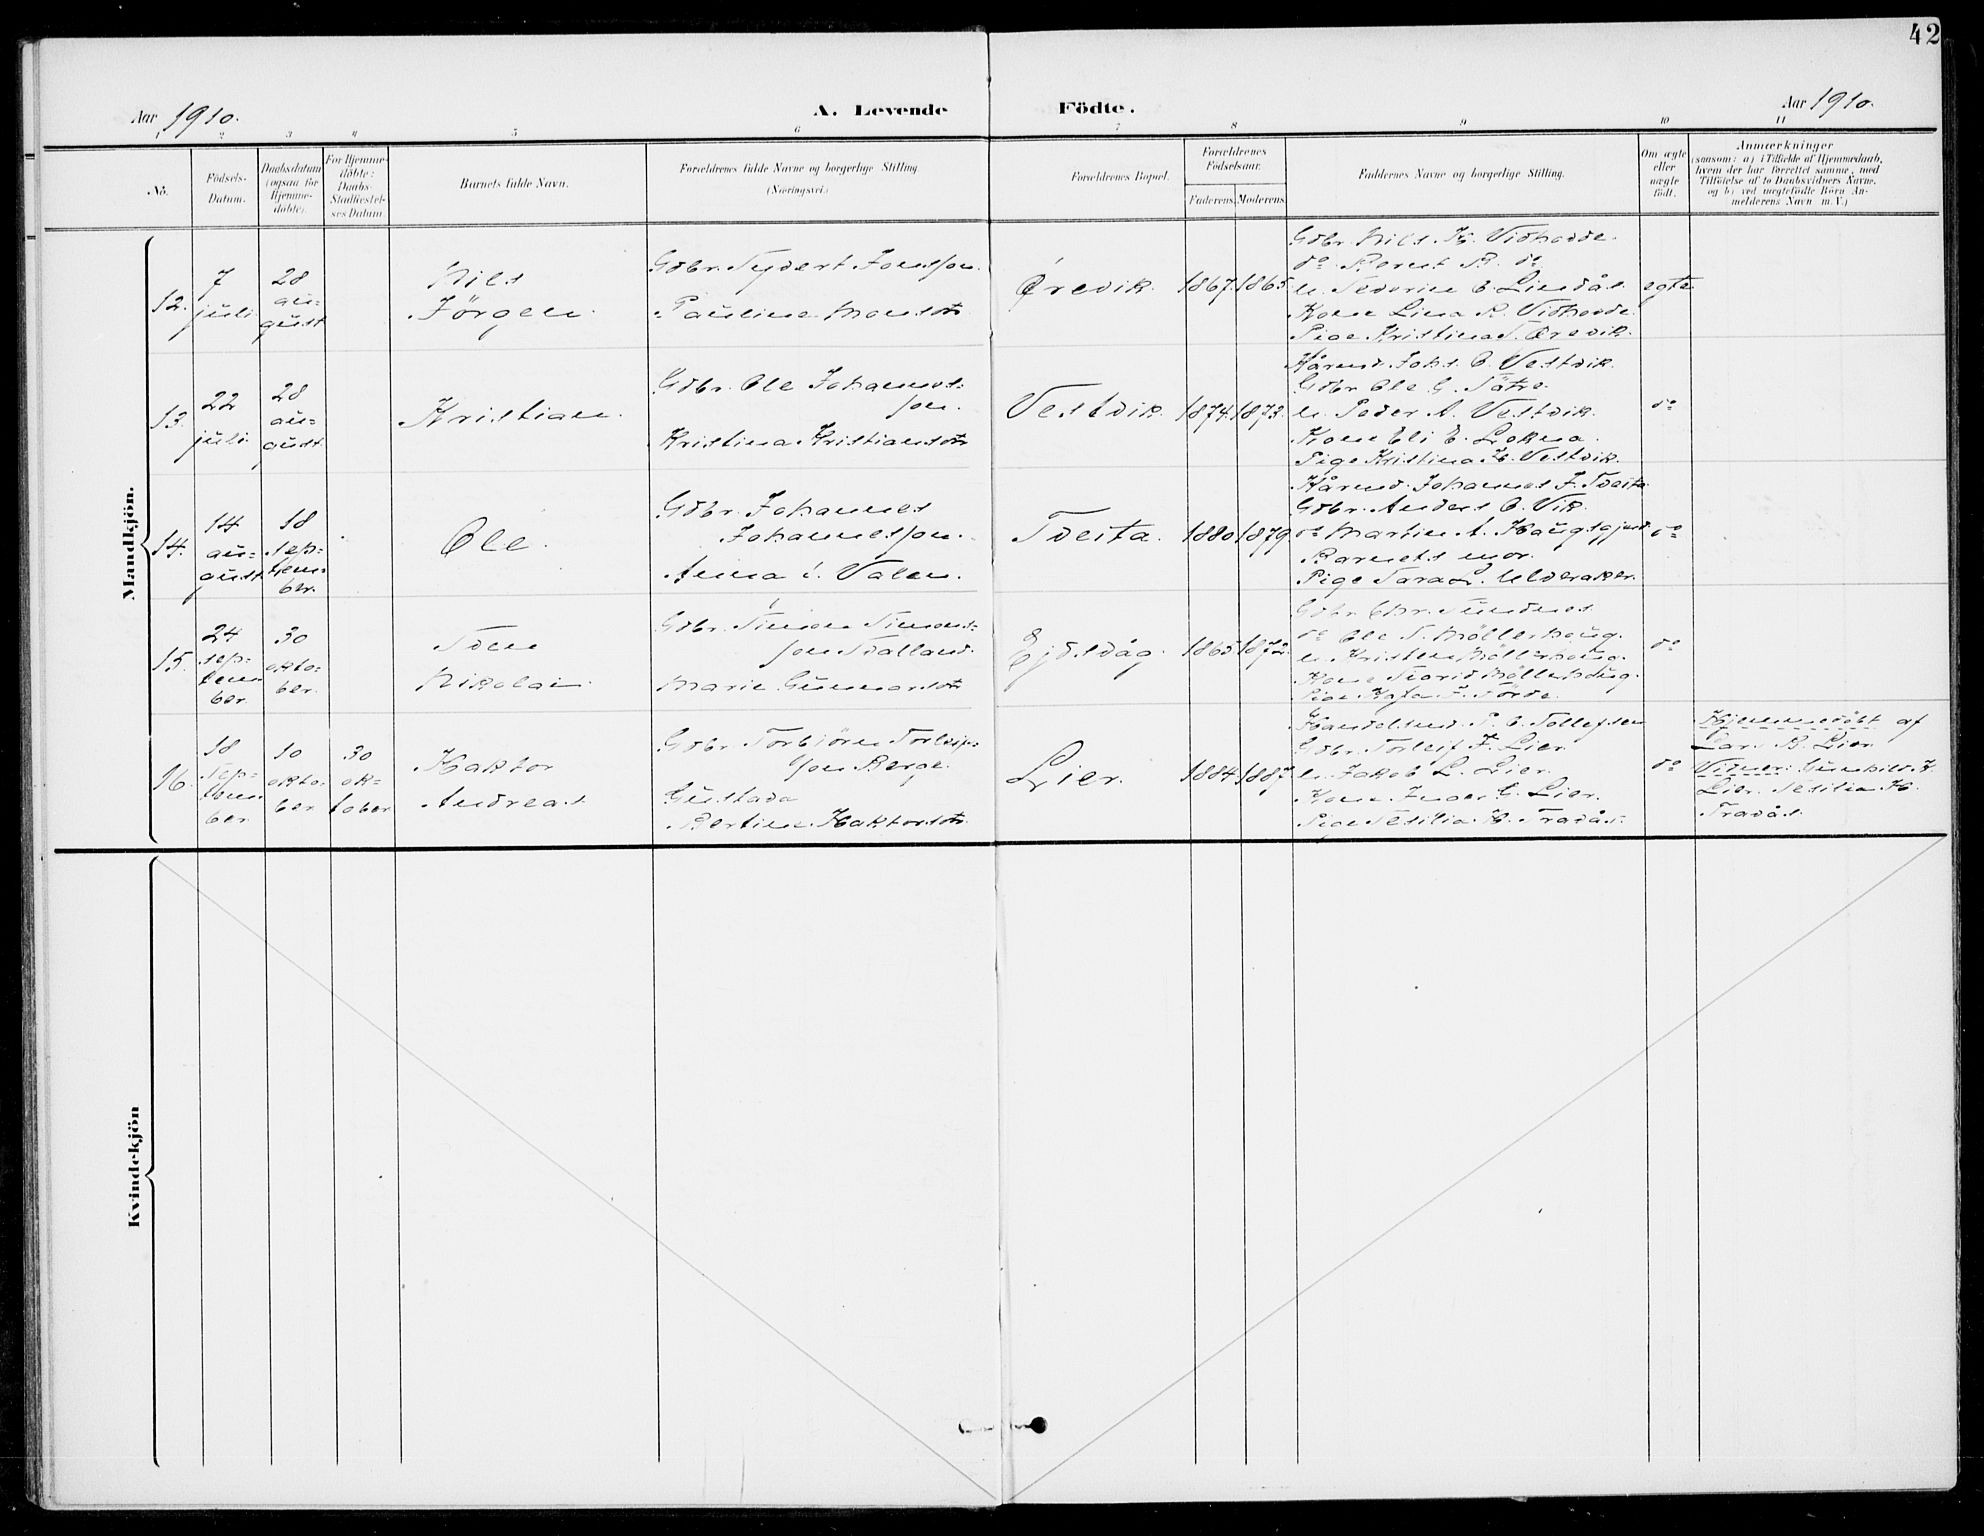 42
Aar 1910.
A. Levende Födte.
Aar 1910.
1 2 3 4 5 6 7 8 9 10 11
No.
Födsels-
Datum.
Daabsdatum
(ogsaa for
Hjemme-
döbte).
For Hjemme-
döbte:
Daabs-
Stadfæstel-
ses Datum
Barnets fulde Navn.
Forældrenes fulde Navne og borgerlige Stilling
(Næringsvei.)
Forældrenes Bopæl.
Forældrenes
Födselsaar.
Faderens. Moderens.
Faddernes Navne og borgerlige Stilling.
Om ægte
eller
uægte
födt.
Anmærkninger
(saasom: a) i Tilfælde af Hjemmedaab,
hvem der har forrettet samme, med
Tilföielse af to Daabsvidners Navne,
og b) ved uægtefödte Börn An-
melderens Navn m. V.)
Mandkjön.
12.
7
juli
28
au-
gust
Nils
Jörgen.
Gdbr. Sydert Jonsson.
Pauline Monsdtr
Örevik.
1867. 1865.
Gdbr. Nils H. Vidhovde.
do Bernt B. do
u. Severine E. Lindås.
Kone Lina R. Vidhovde.
Pige Kristina S. Örevik.
egte
13.
22
juli.
28
au-
gust
Kristian.
Gdbr. Ole Johannes-
son.
Kristina Kristiansdtr
Vestvik.
1874. 1873.
Kårmd. Johs. O. Vestvik.
Gdbr. Ole G. Sätre.
u. Peder A. Vestvik.
Kone Eli E. Lokna.
Pige Kristina H. Vestvik.
do
14.
14
au-
gust
18
sep-
tem-
ber.
Ole.
Gdbr. Johannes
Johannesson.
Anna i. Valen.
Tveita.
1880 1879
Kårmd. Johannes J. Tveita
Gdbr. Anders O. Vik.
do Martin A. Haugsgjerd.
Barnets mor.
Pige Sara L. Ulveraker.
do
15.
24
sep-
tem-
ber
30
okto-
ber.
Sven
Nikolai.
Gdbr. Simon Simons-
son Svalland.
Marie Gunnarsdtr
Ejdsvåg.
1865 1872.
Gdbr. Chr. Sundnes
do Ole S. Möllerhaug.
u. Kristen Möllerhaug.
Kone Siovid Möllerhaug.
Pige Kaja F. Förde.
do
16.
18
sep-
tem-
ber
10
okto-
ber
30
ok-
tober
Haktor
Andreas
Gdbr. Torbjörn Torleifs-
son Berge.
Gustava
Bertine Haktorsdtr
Lier.
1884 1887
Handelsmd. P. O. Tollefsen
Gdbr. Torleif J. Lier
u. Jakob L. Lier.
Kone Inger G. Lier.
Pige Sesilia H. Tradås.
do
Hjemmedöbt af
Lars B. Lier
Vitner: Gunhild K.
Lier. Sesilia H.
Tradås.
Kvindekjön